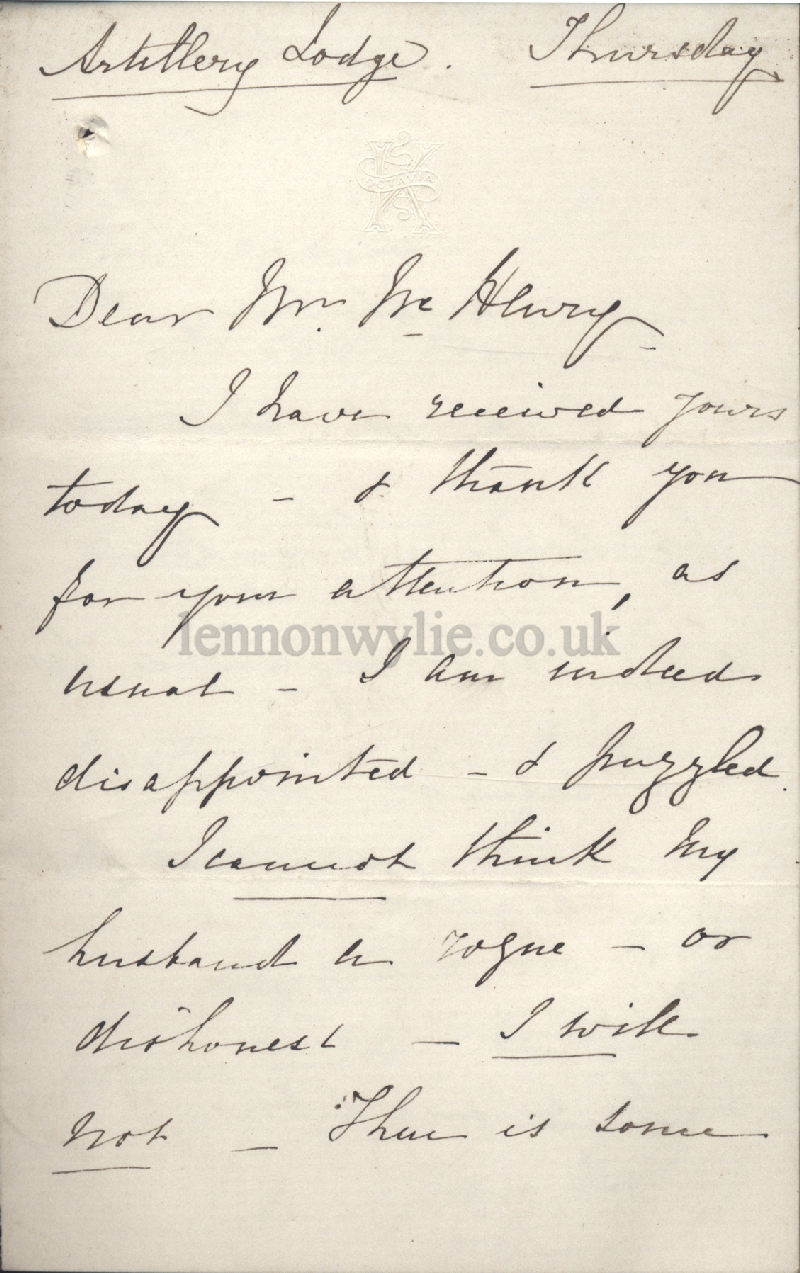 Artillery Lodge. Thursday
OCTAVIA
Dear Mr. Mc Henry
I have received yours
today - & thank you
for your attention, as
lennonwylie.co.uk
usual - I am indeed
disappointed - & puzzled.
I cannot think my
husband a rogue - or
dishonest - I will
not - There is some